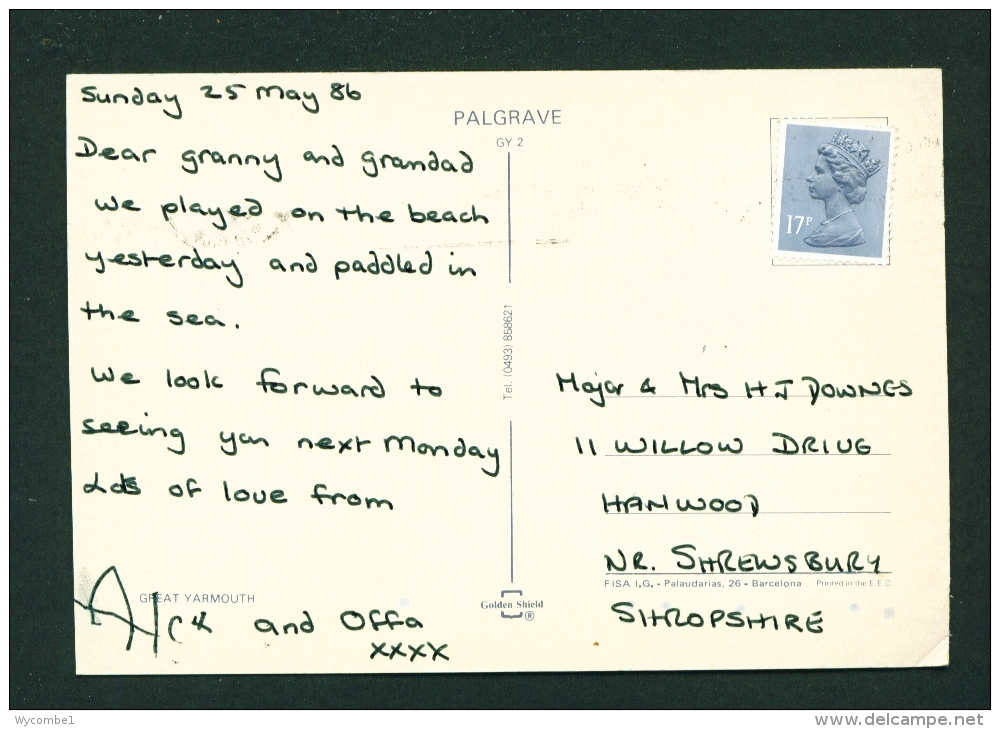 Sunday 25 May 86
Dear granny and grandad
we played on the beach
yesterday and paddled in
the sea.
We look forward to
seeing you next Monday
Lots of love from
and Offa
xxxx
GREAT YARMOUTH
PALGRAVE
GY 2
Tel. (0493) 858621
Golden Shield
®
17P
Major & Mrs H J DOWNES
11 WILLOW DRIVE
HANWOOD
NR. SHREWSBURY
FISA I.G. - Palaudarias, 26 - Barcelona Printed in the E.E.C.
SHROPSHIRE
Wycombe1
delcampe.net